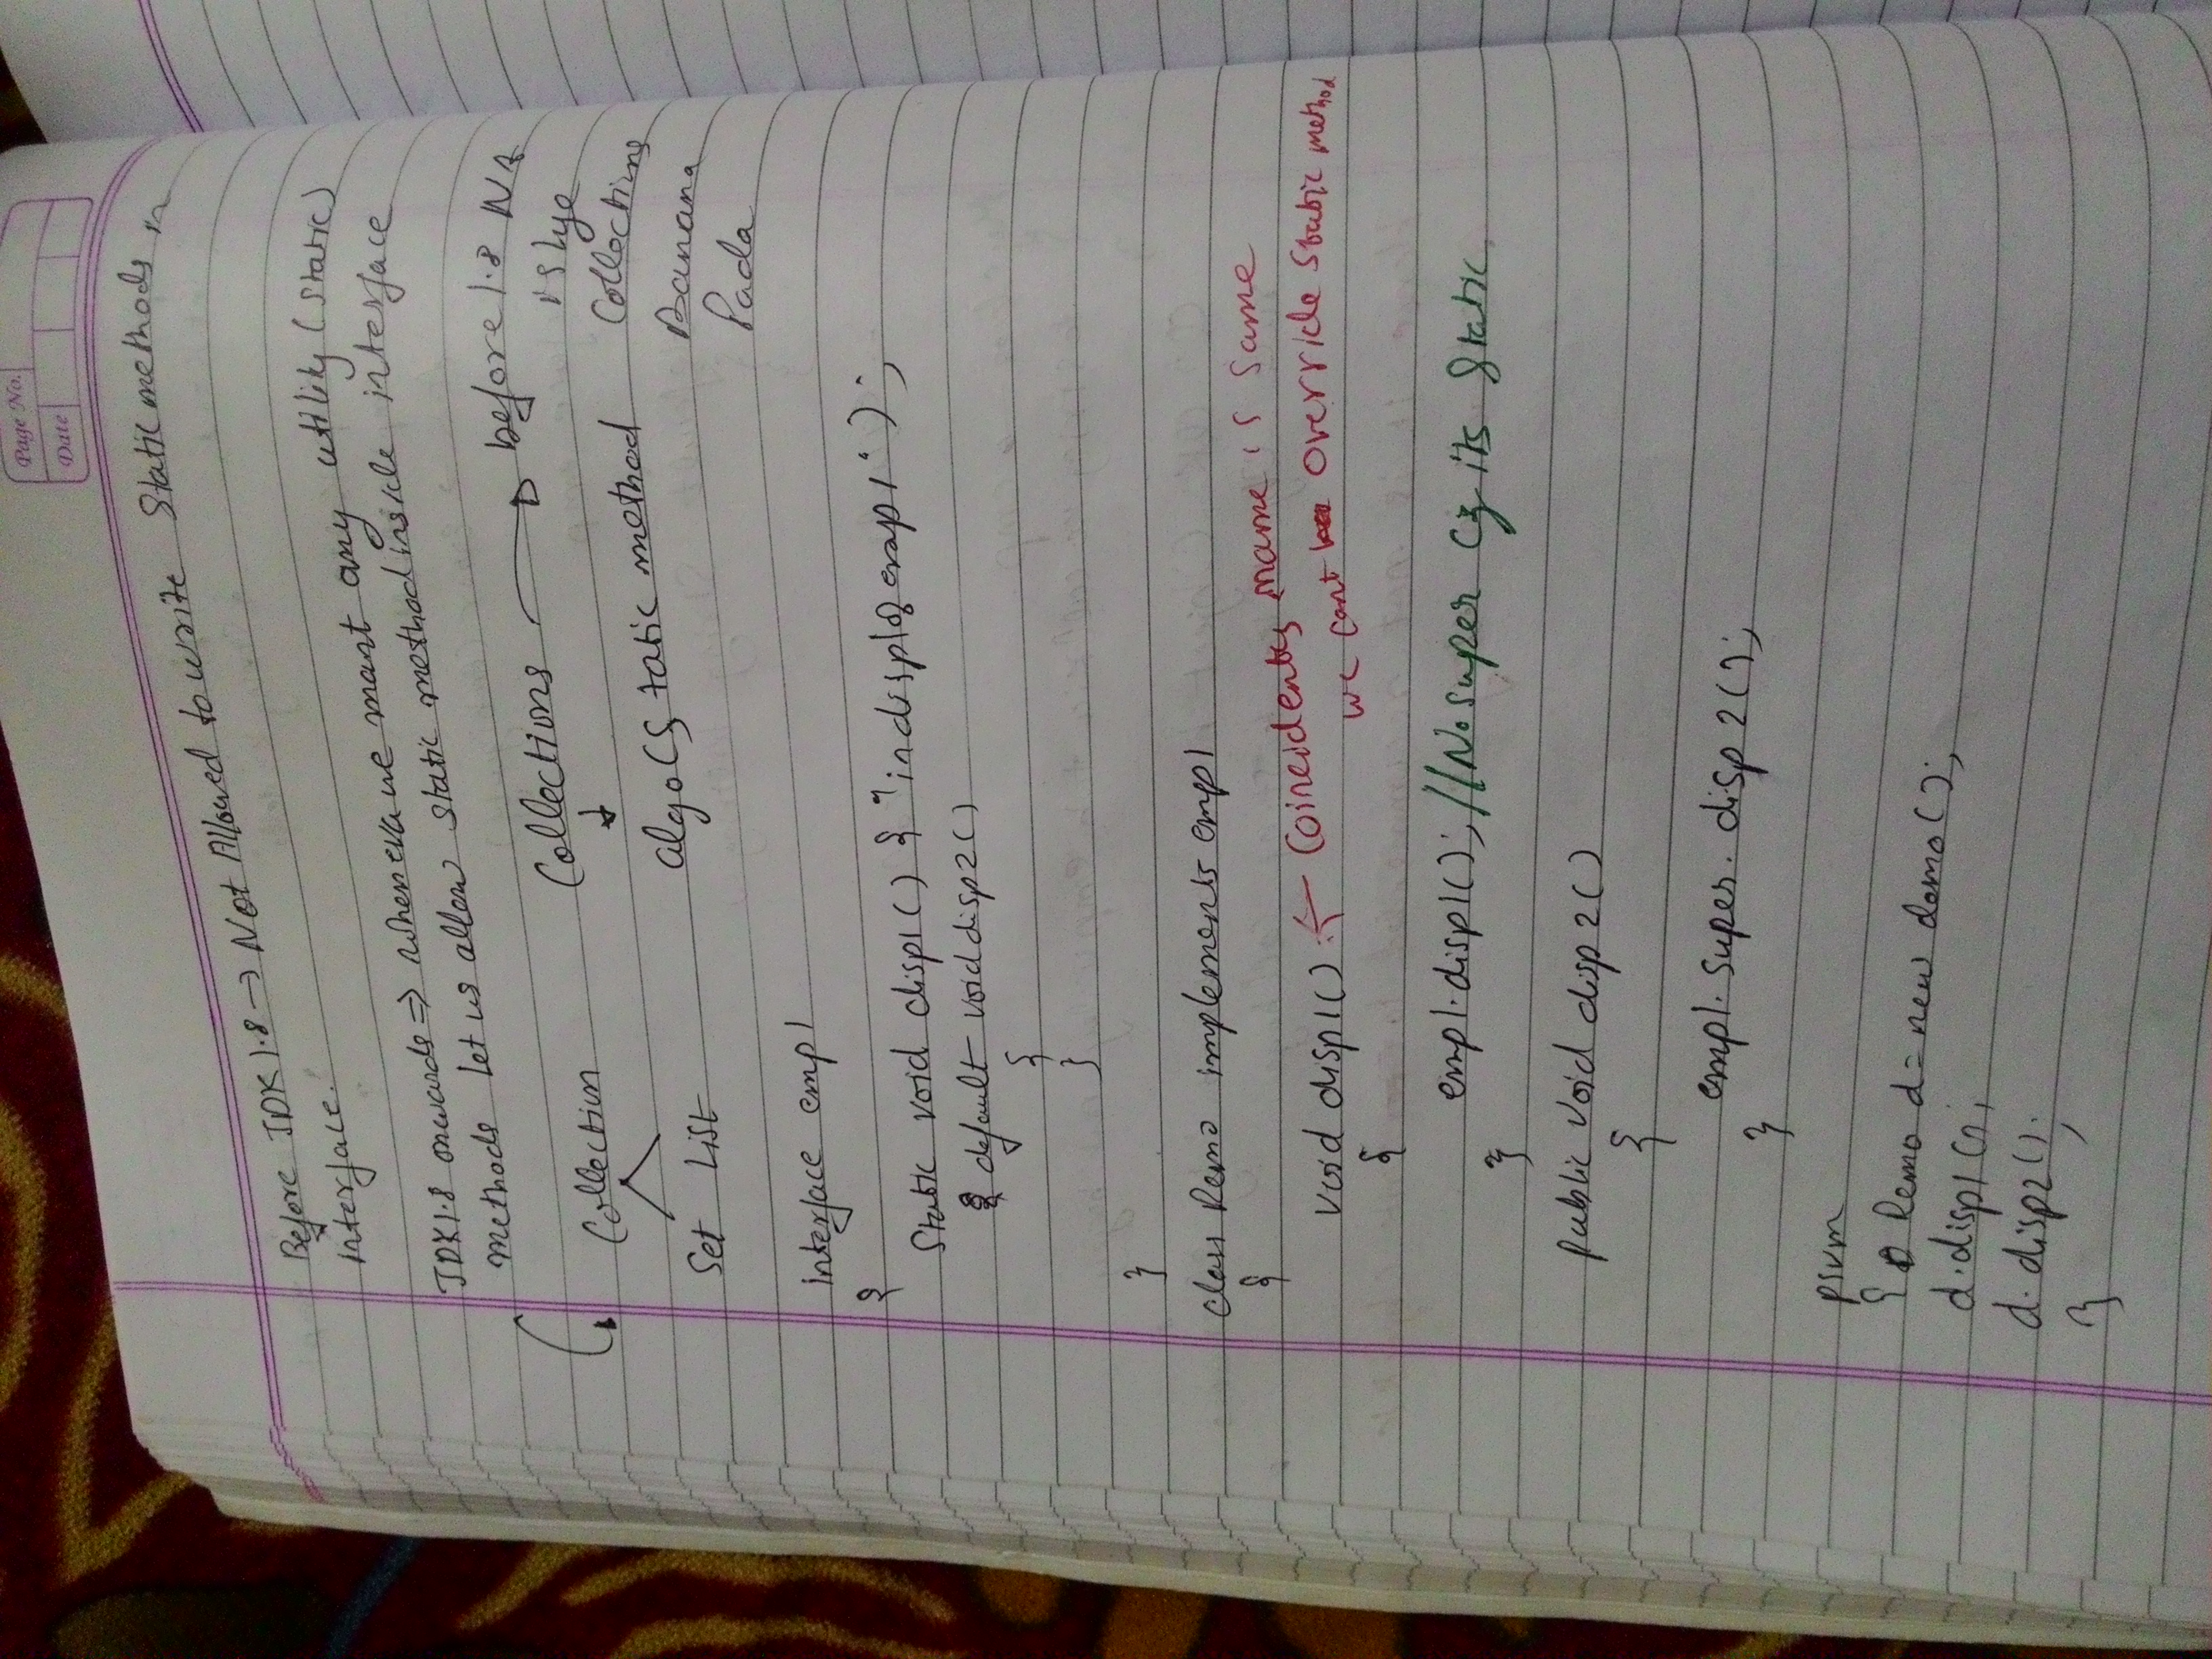 Page No.
Date
Before JDK 1.8 → Not Allowed to write Static methods in
interface.
JDK1.8 onwards ⇒ whenever we want any utility (static)
methods let us allow static method inside interface
Collection
Set List
Collections → before 1.8 NA
↓
algo (Static method
islye
Collections
Banana
Pada
interface emp1
{
Static void disp1() { "in disp1 of emp1");
default void disp2()
{
}
}
class Demo implements emp1
{
void disp1() ← Coincidently name is same
we cant override Static method
{
emp1.disp1(); //No super Cz its Static
}
public void disp2()
{
emp1.super.disp2();
}
psvm
{ Demo d = new demo();
d.disp1();
d.disp2();
}